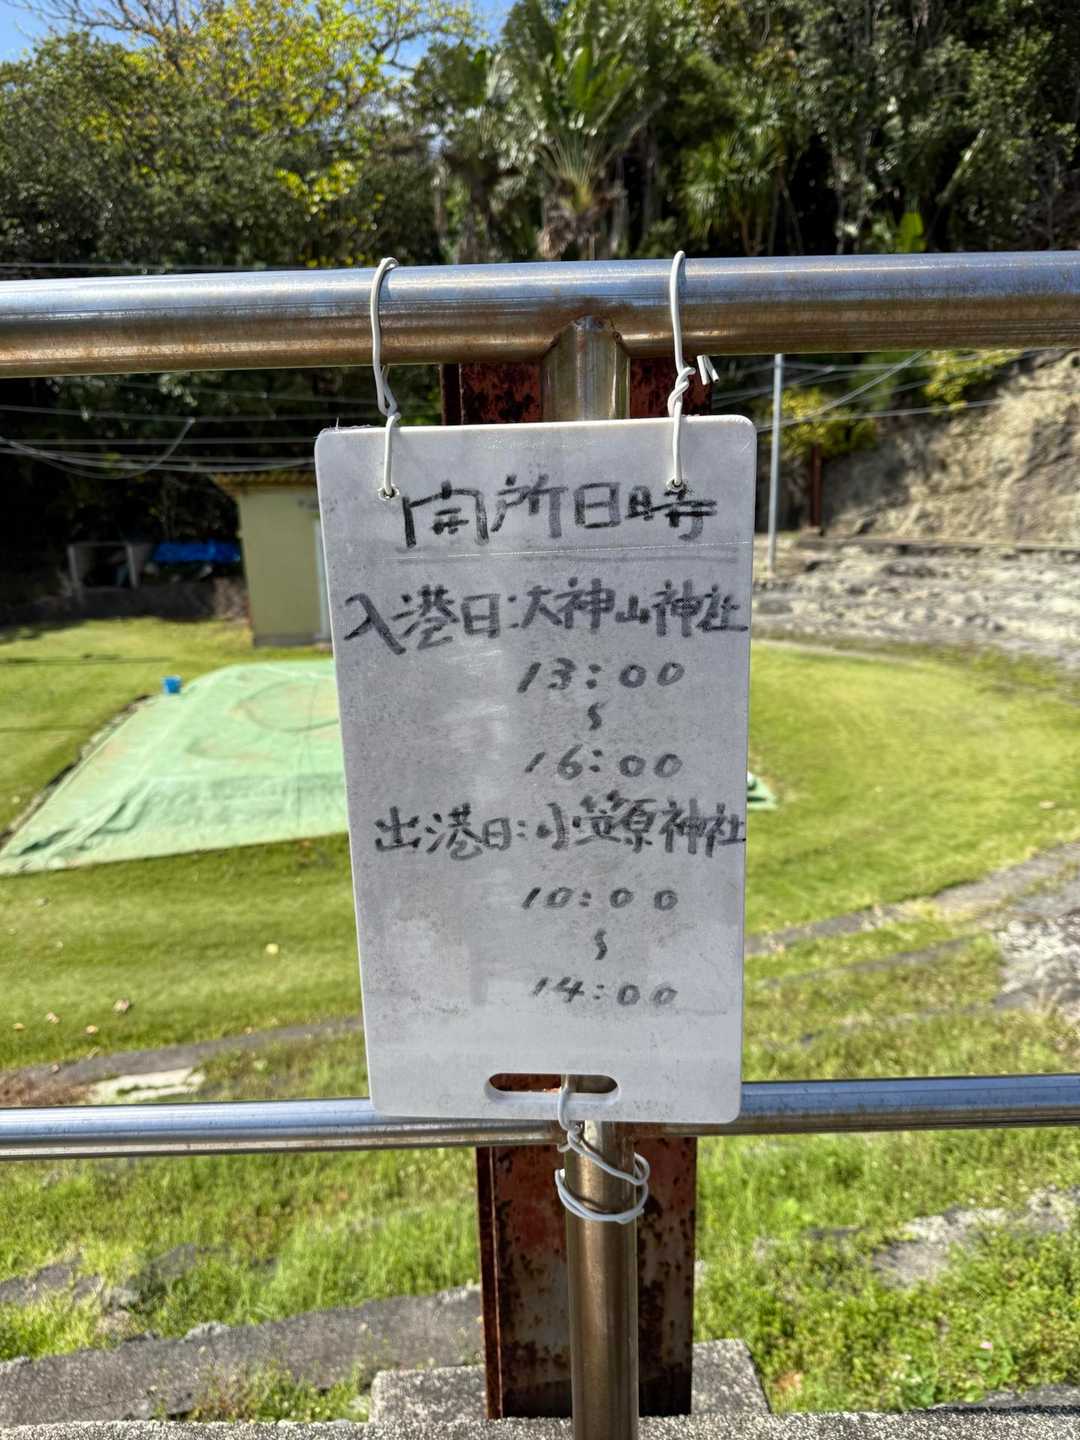 開所日時
入港日:大神山神社
13:00
〜
16:00
出港日:小笠原神社
10:00
〜
14:00